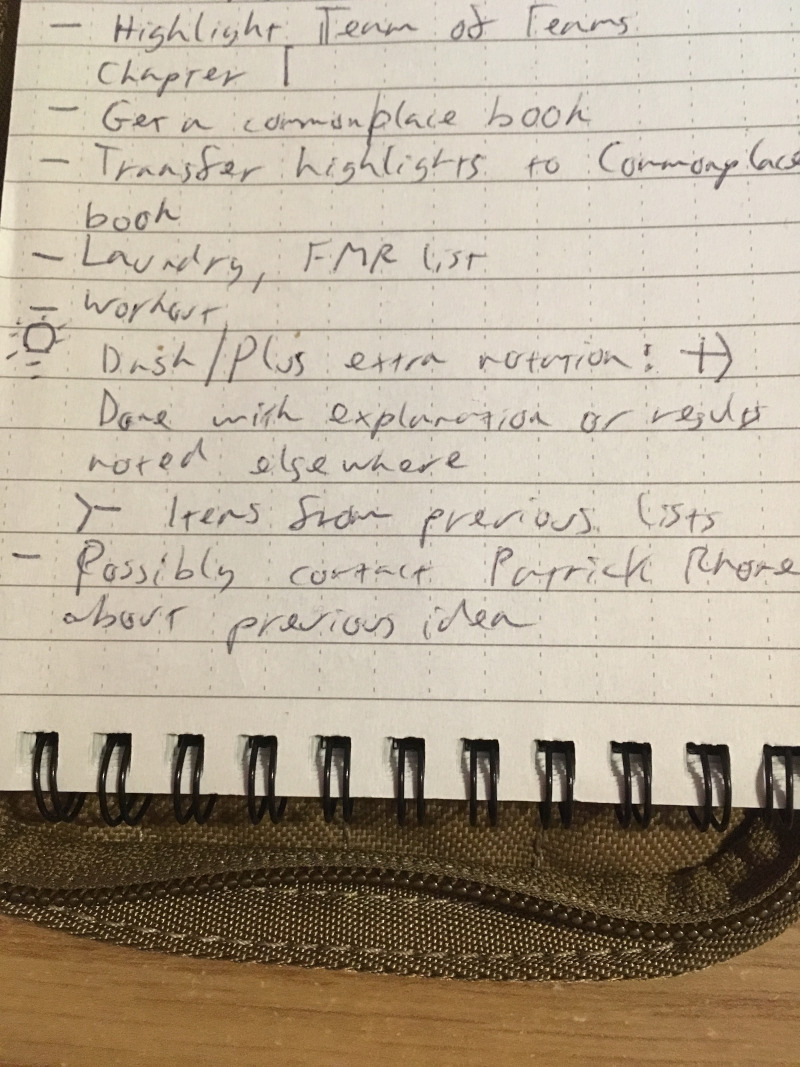 - Highlight Team of Teams
Chapter 1
- Get a commonplace book
- Transfer highlights to Commonplace
book
- Laundry, FMR list
- Workout
Dash/Plus extra notation: +)
Done with explanation or results
noted elsewhere
>- Items from previous lists
- Possibly contact Patrick Rhone
about previous idea